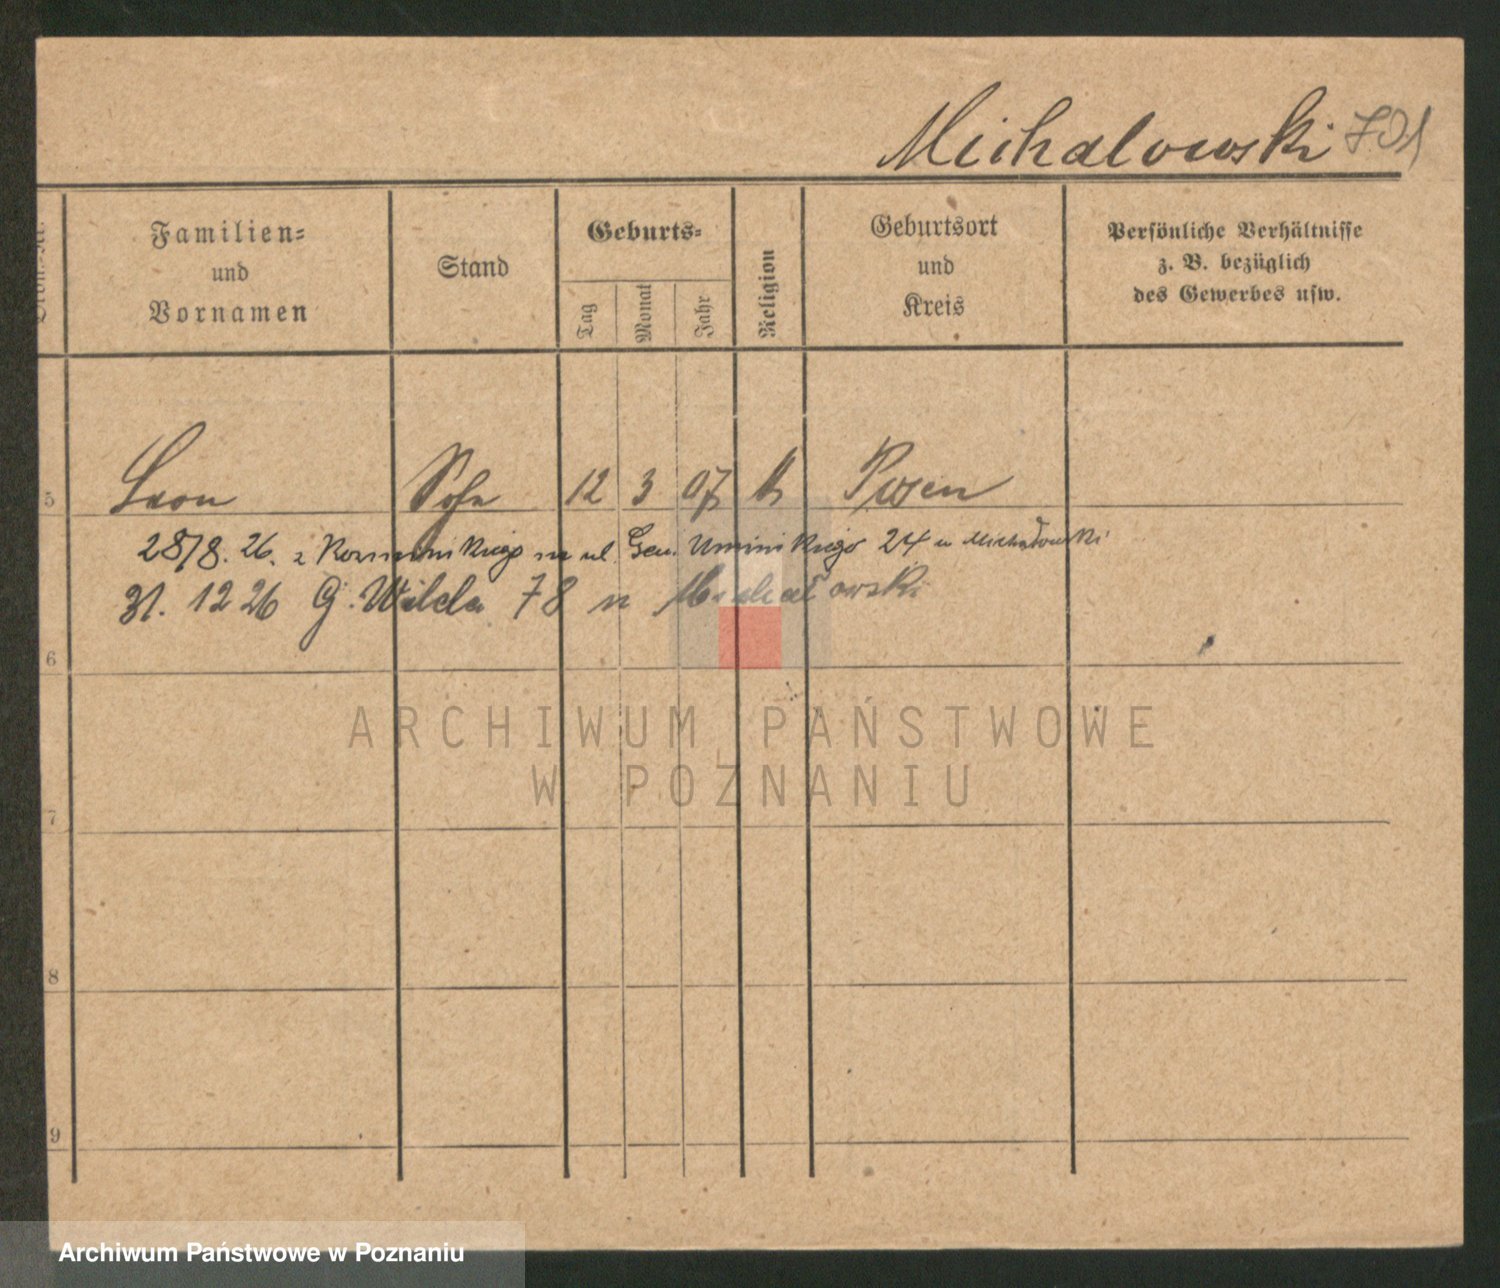 Michalowski 701
Familien=
und
Vornamen
Stand
Geburts=
Tag
Monat
Jahr
Religion
Geburtsort
und
Kreis
Persönliche Verhältnisse
z. B. bezüglich
des Gewerbes usw.
5 Leon Sohn 12 3 07 k Posen
28/8. 26. z na ul. Gen. Uminskiego 24 u Michałowski
31. 12 26 G. Wilda 78 u Michałowski
6
7
8
9
ARCHIWUM PAŃSTWOWE
W POZNANIU
Archiwum Państwowe w Poznaniu